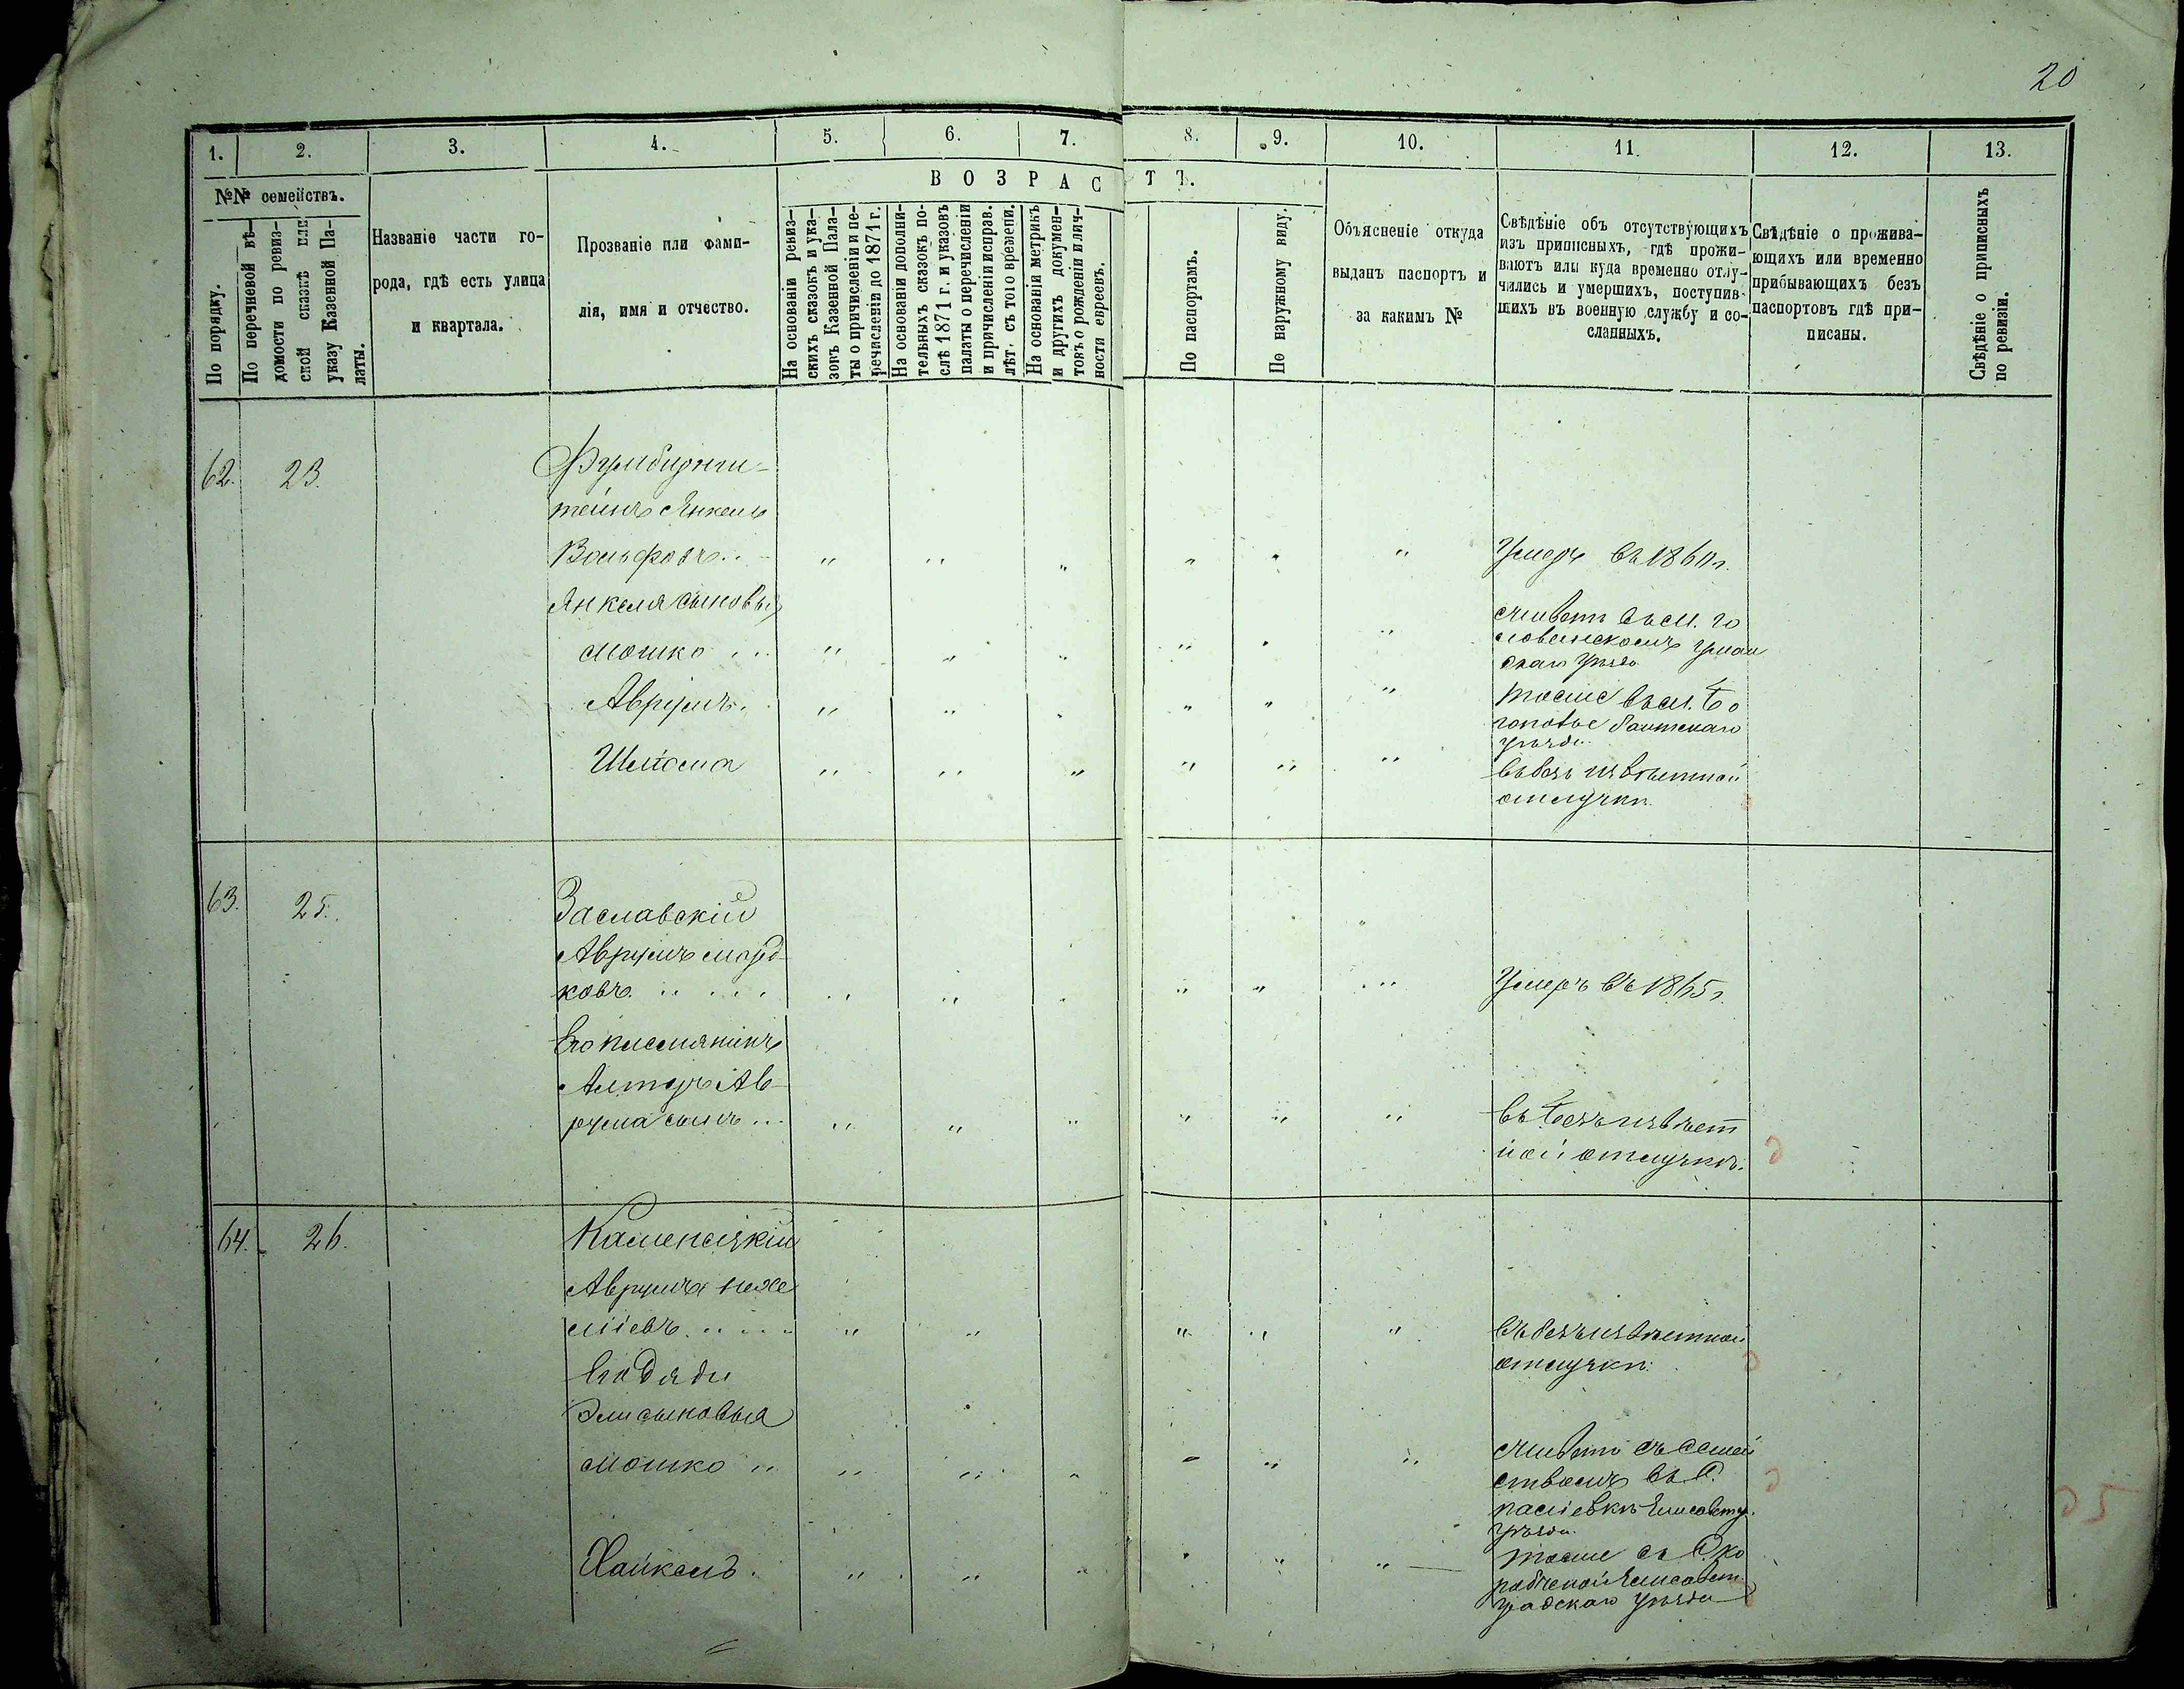 20
1. 2. 3. 4. 5. 6. 7. 8. 9. 10. 11. 12. 13.
№№ семействъ.
По порядку.
По перечневой вѣ-
домости по ревиз-
ской сказкѣ или
указу Казенной Па-
латы.
Названіе части го-
рода, гдѣ есть улица
и квартала.
Прозваніе или фами-
лія, имя и отчество.
ВОЗРАСТЪ.
На основаніи ревиз-
скихъ сказокъ и ука-
зовъ Казенной Пала-
ты о причисленіи и пе-
речисленіи до 1871 г.
На основаніи дополни-
тельныхъ сказокъ по-
слѣ 1871 г. и указовъ
палаты о перечисленіи
и причисленіи исправ.
лѣт. съ того времени.
На основаніи метрикъ
и другихъ докумен-
товъ о рожденіи и лич-
ности евреевъ.
По паспортамъ.
По наружному виду.
Объясненіе откуда
выданъ паспортъ и
за какимъ №
Свѣдѣніе объ отсутствующихъ
изъ приписныхъ, гдѣ прожи-
ваютъ или куда временно отлу-
чились и умершихъ, поступив-
шихъ въ военную службу и со-
сланныхъ.
Свѣдѣніе о прожива-
ющихъ или временно
прибывающихъ безъ
паспортовъ гдѣ при-
писаны.
Свѣдѣніе о приписныхъ
по ревизіи.
62. 23.
тейнъ Янкель
Вольфовъ
Умеръ въ 1860 г.
Янкеля сыновья
Мошко
Живетъ въ м. Го
ловановскомъ Уман
скаго уѣзда
Аврумъ
тоже въ м. Бо
гополѣ Балтскаго
уѣзда
Шлiома
въ безъизвѣстной
отлучкѣ.
63. 25.
Заславскій
Аврумъ Морд-
ковъ
Умеръ въ 1865 г.
Его племянникъ
Алтеръ Ав-
рума сынъ
въ безъизвѣст
ной отлучкѣ.
64. 26.
Каменецкій
Аврумъ Нахе
міевъ
въ безъизвѣстной
отлучкѣ.
Его дяди
Эли сыновья
Мошко
Живетъ съ семей
ствомъ въ С.
Елисаветг.
уѣзда.
Хайкель
тоже въ С.
Елисавет
градскаго уѣзда